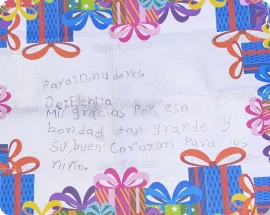 Para: Donadores
De: Elenita
Mil gracias Por esa
bondad tan grande y
Su buen Corazon Para los
niño.